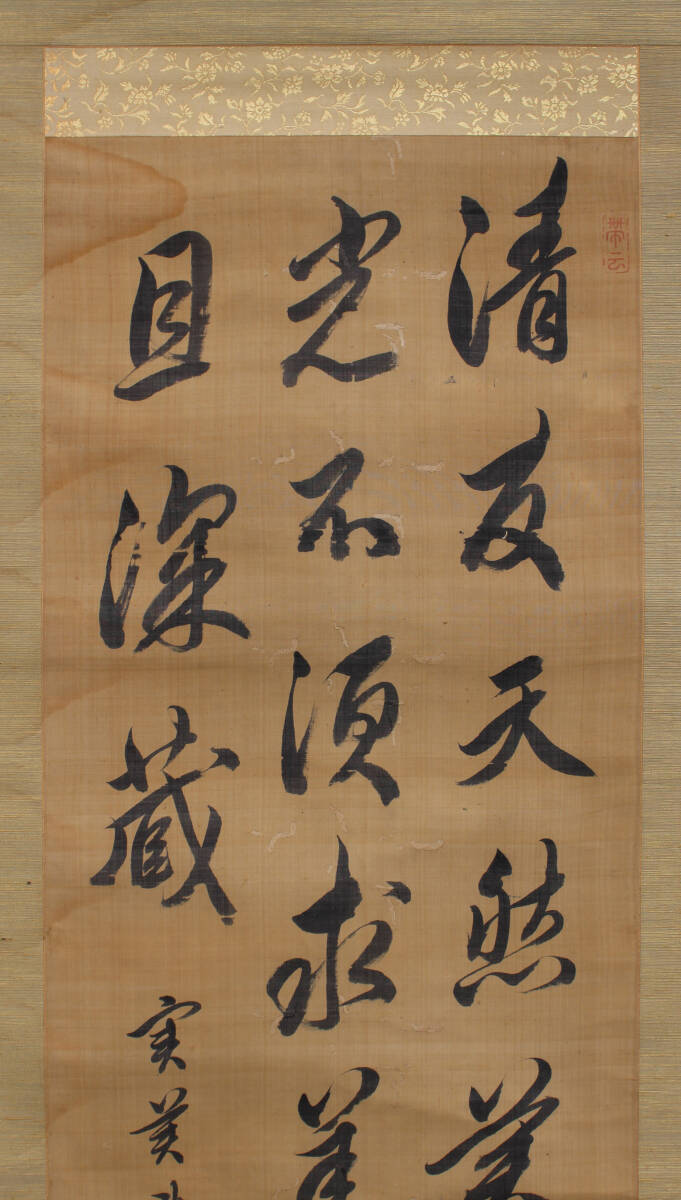 清友天然
光不須求
且深藏
実美